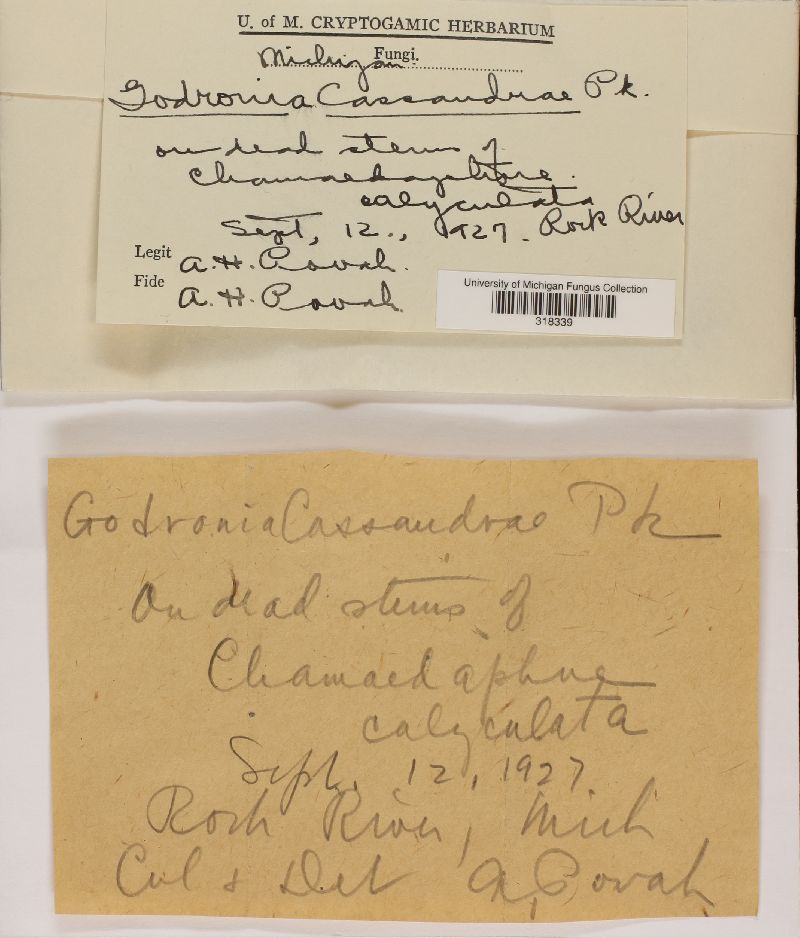 U. of M. CRYPTOGAMIC HERBARIUM
Michigan Fungi.
Godronia Cassandrae Pk.
on dead stems of
Chamaedaphne
calyculata
Sept, 12., 1927. Rock River
Legit A. H. Povah.
Fide A. H. Povah.
University of Michigan Fungus Collection
318339
Godronia Cassandrae Pk
On dead stems of
Chamaedaphne
calyculata
Sept. 12, 1927
Rock River, Mich
Col & Det A, Povah